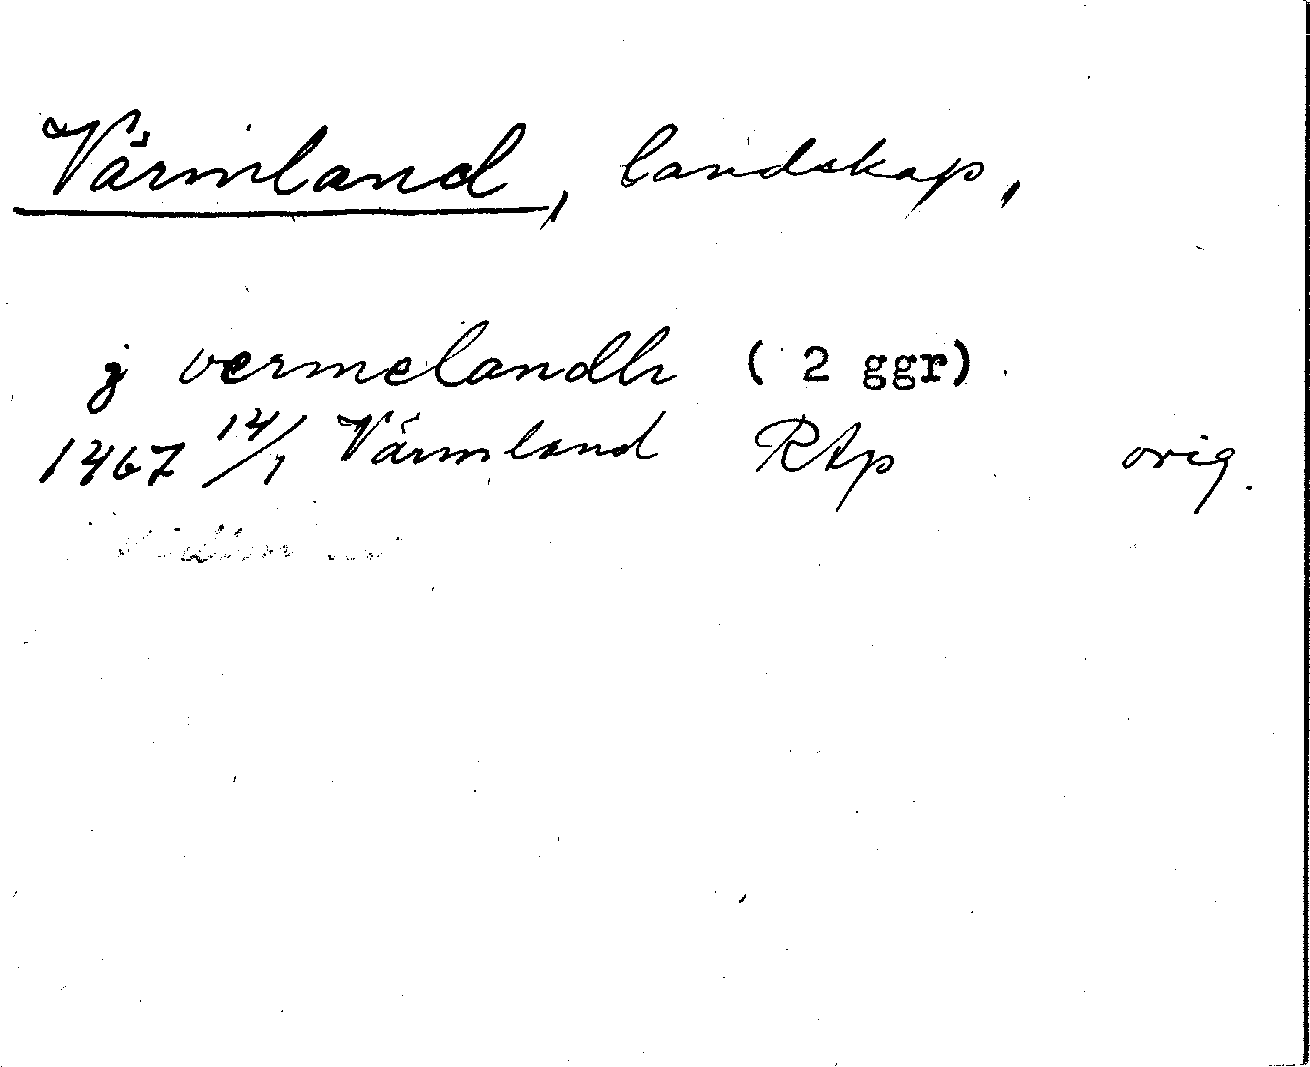 Värmland, landskap,
j vermelandh (2 ggr)
1467 14/1 Värmland RAp orig.